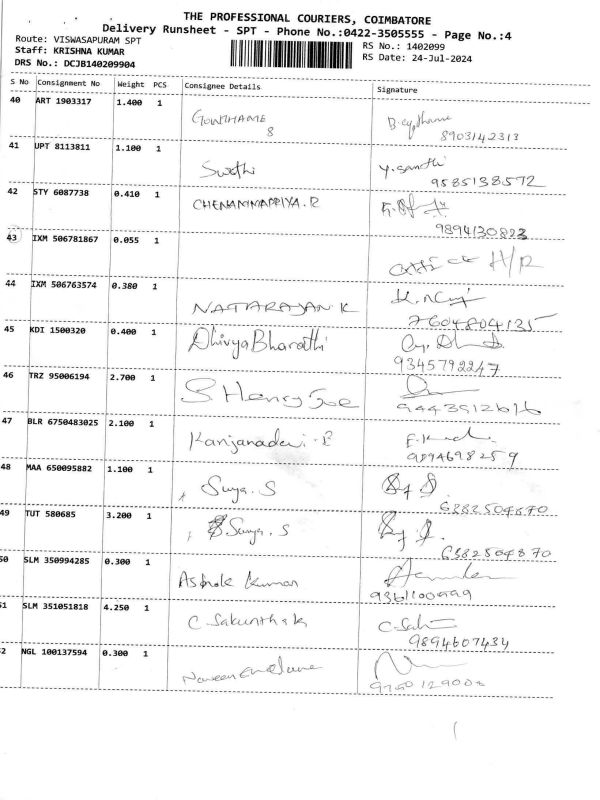 THE PROFESSIONAL COURIERS, COIMBATORE
Delivery Runsheet - SPT - Phone No.:0422-3505555 - Page No.:4
Route: VISWASAPURAM SPT
RS No.: 1402099
Staff: KRISHNA KUMAR
RS Date: 24-Jul-2024
DRS No.: DCJB140209904
S No Consignment No Weight PCS Consignee Details Signature
40 ART 1903317 1.400 1
GOWTHAME
8
8903142313
41 UPT 8113811 1.100 1
Swathi y. santhi
9585138572
42 STY 6087738 0.410 1 CHENAMMAPPIYA.R
9894130823
43 IXM 506781867 0.055 1
H/R
44 IXM 506763574 0.380 1
NATARAJAN K
7604804135
45 KDI 1500320 0.400 1
DhivyaBharathi
9345792247
46 TRZ 95006194 2.700 1
S. Henry
9443512616
47 BLR 6750483025 2.100 1
Kanjanadevi. E
9894698259
48 MAA 650095882 1.100 1
Surya. S
6382504870
49 TUT 580685 3.200 1
Surya. S
6382504870
50 SLM 350994285 0.300 1
Ashok Kumar
9361100999
51 SLM 351051818 4.250 1
C Sakunthala C. Sa
9894607434
52 NGL 100137594 0.300 1
Naveen